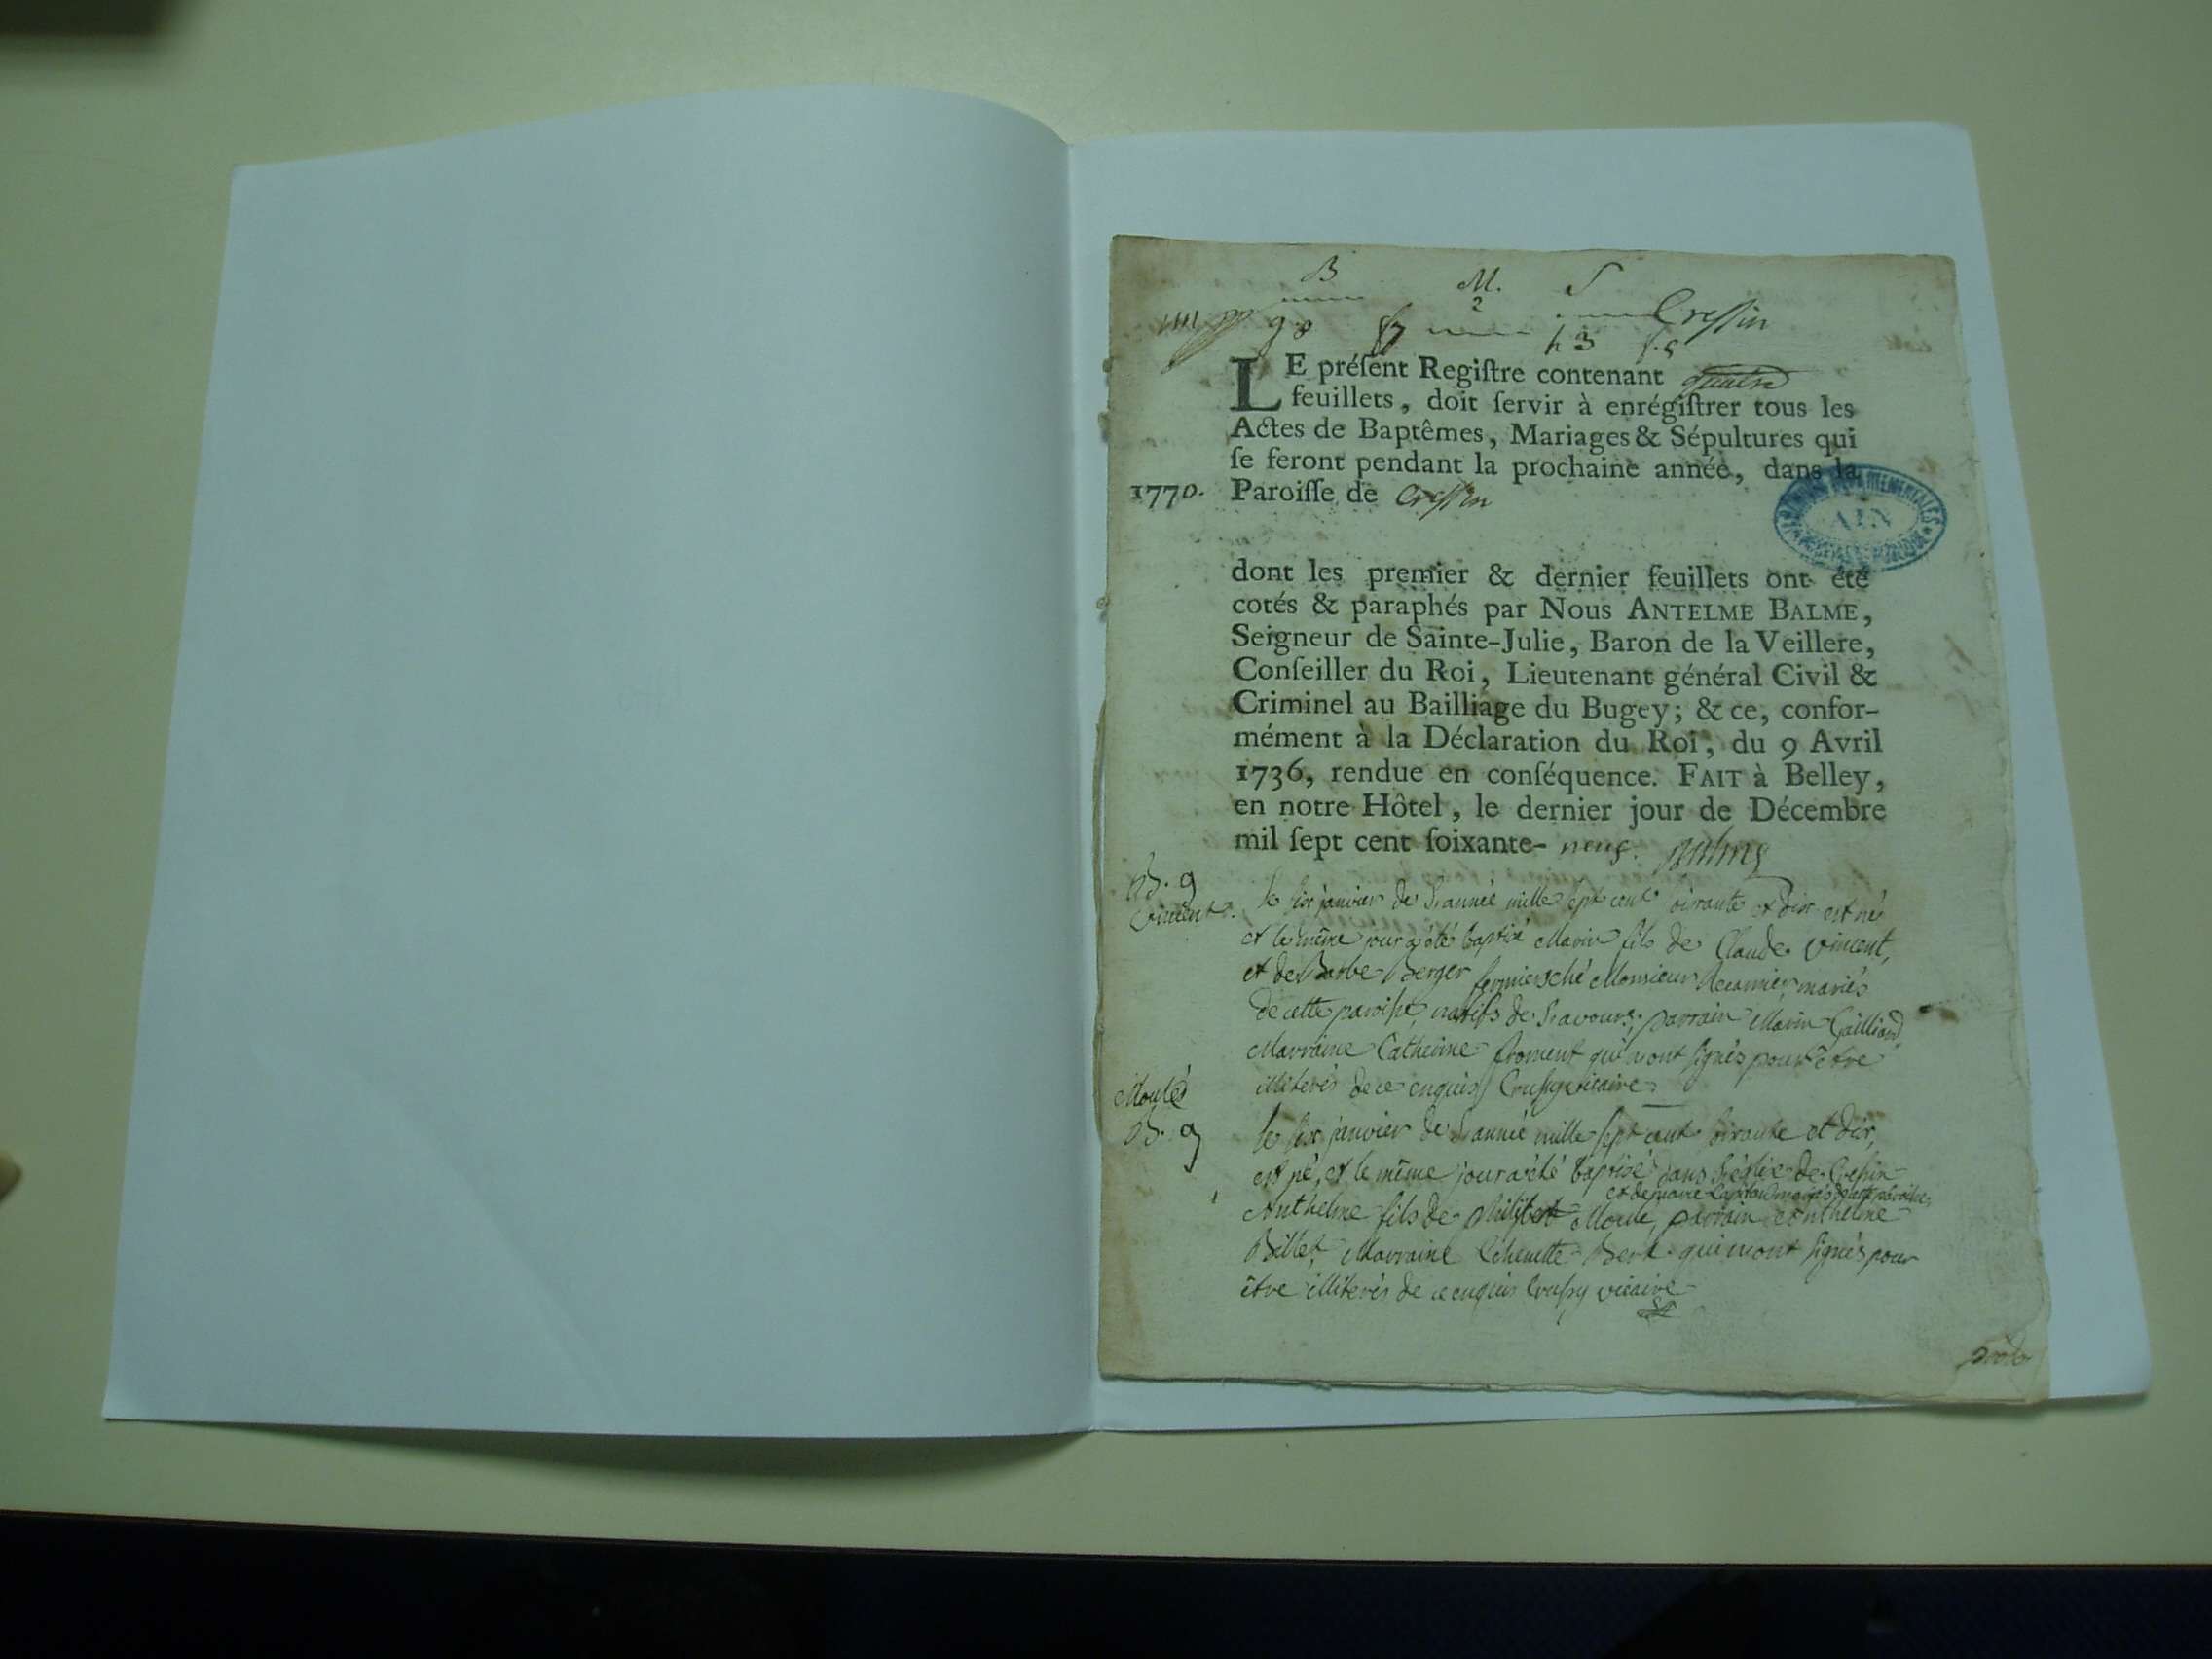 B M. S
2 Cressin
g 8 f7 h 3 f. 5
LE préſent Regiſtre contenant quatre
feuillets, doit ſervir à enrégiſtrer tous les
Actes de Baptêmes, Mariages & Sépultures qui
ſe feront pendant la prochaine année, dans la
1770. Paroiſſe de Cressin
AIN
dont les premier & dernier feuillets ont été
cotés & paraphés par Nous ANTELME BALME,
Seigneur de Sainte-Julie, Baron de la Veillere,
Conſeiller du Roi, Lieutenant général Civil &
Criminel au Bailliage du Bugey; & ce, confor-
mément à la Déclaration du Roi, du 9 Avril
1736, rendue en conſéquence. FAIT à Belley,
en notre Hôtel, le dernier jour de Décembre
mil ſept cent ſoixante- neuf. Balme
B. g
vincent. le six janvier de l'année mille sept cent soixante et dix est né
et le même jour a été baptisé Marin fils de Claude vincent,
et de Barbe Berger fermiers ché Monsieur Recamier mariés
de cette paroisse, natifs de Lavours, parrain Marin Gailliard,
Marraine Catherine froment qui n'ont signés pour être
illiterés de ce enquis Crussy vicaire
Moulé
B. g le six janvier de l'année mille sept cent soixante et dix,
est né, et le même jour a été baptisé dans l'église de Cressin
et de marie mariés de cette paroisse,
Anthelme fils de philibert Moulé, parrain Anthelme
Billet, Marraine qui n'ont signés pour
être illiterés de ce enquis Crussy vicaire